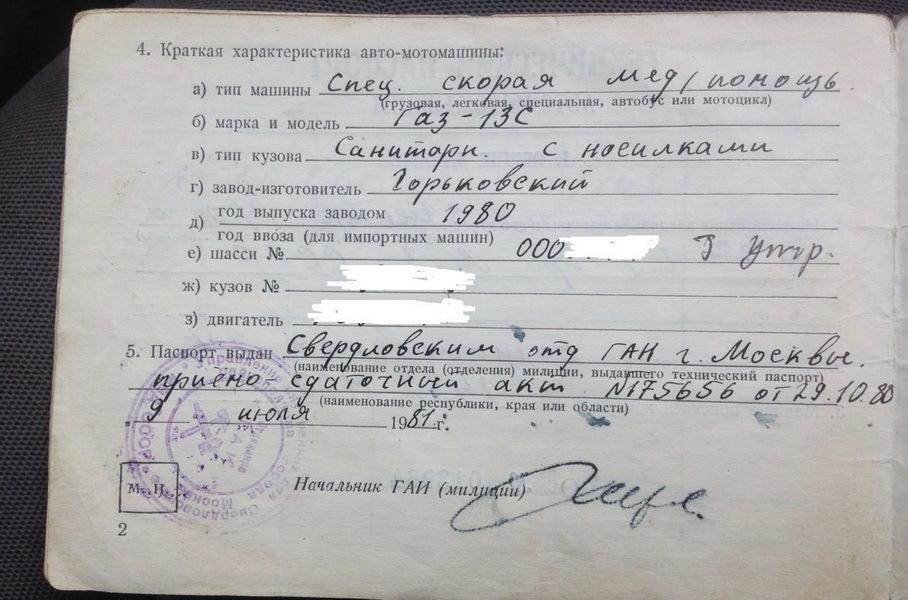 4. Краткая характеристика авто-мотомашины:
а) тип машины Спец. скорая мед/помощь.
(грузовая, легковая, специальная, автобус или мотоцикл)
б) марка и модель Газ-13С
в) тип кузова Санитарн. с носилками
г) завод-изготовитель Горьковский
д) год выпуска заводом 1980
год ввоза (для импортных машин)
е) шасси № 000
ж) кузов №
з) двигатель
5. Паспорт выдан Свердловским отд ГАИ г. Москвы.
(наименование отдела (отделения) милиции, выдавшего технический паспорт)
приемо сдаточный акт N175656 от 29.10.80
(наименование республики, края или области)
9 июля 1981 г.
М. П. Начальник ГАИ (милиции)
2